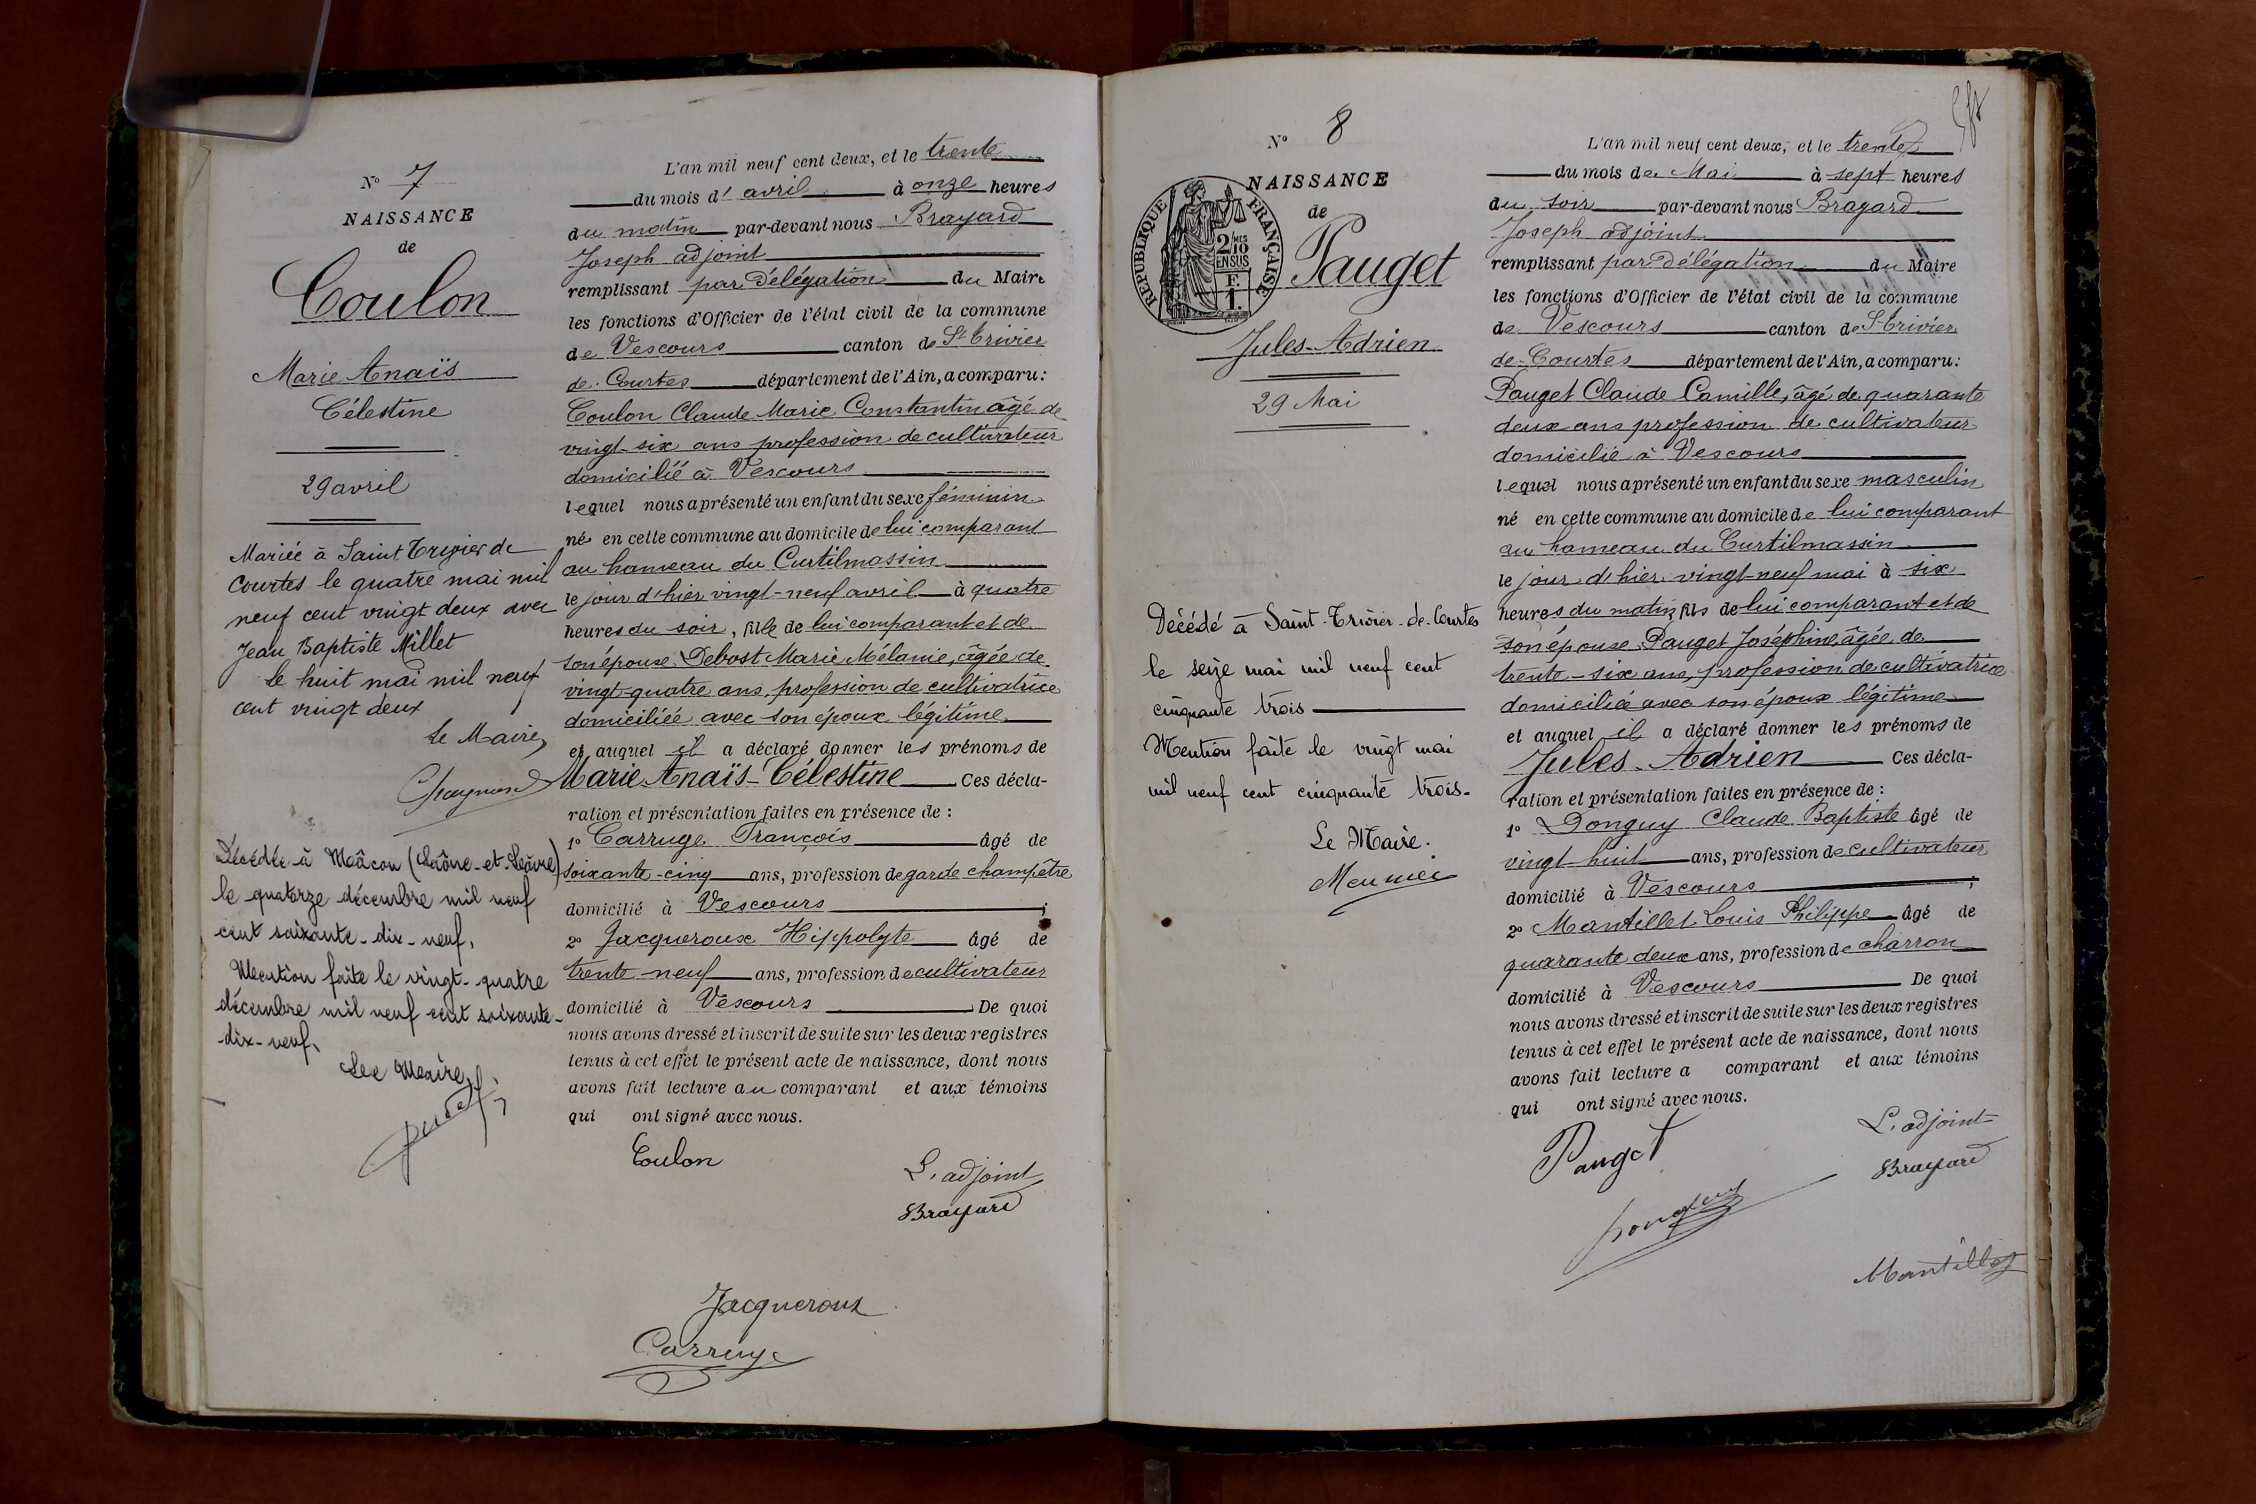 N° 7
NAISSANCE
de
Coulon
Marie Anaïs
Célestine
29 avril
Mariée à Saint Trivier de
Courtes le quatre mai mil
neuf cent vingt deux avec
Jean Baptiste Millet
le huit mai mil neuf
cent vingt deux
Le Maire,
Décédée à Mâcon (Saône-et-Loire)
le quatorze décembre mil neuf
cent soixante-dix-neuf.
Mention faite le vingt-quatre
décembre mil neuf cent soixante-
dix-neuf.
Le Maire,
L'an mil neuf cent deux, et le trente
du mois d' avril à onze heures
du matin par-devant nous Brayard
Joseph adjoint
remplissant par Délégation du Maire
les fonctions d'Officier de l'état civil de la commune
de Vescours canton de St Trivier
de Courtes département de l'Ain, a comparu :
Coulon Claude Marie Constantin âgé de
vingt-six ans profession de cultivateur
domicilié à Vescours
lequel nous a présenté un enfant du sexe féminin
née en cette commune au domicile de lui comparant
au hameau du Curtilmassin
le jour d'hier vingt-neuf avril à quatre
heures du soir, fille de lui comparant et de
son épouse Debost Marie Mélanie, âgée de
vingt-quatre ans, profession de cultivatrice
domiciliée avec son époux légitime
et auquel il a déclaré donner les prénoms de
Marie Anaïs-Célestine Ces décla-
ration et présentation faites en présence de :
1° Carruge François âgé de
soixante-cinq ans, profession de garde champêtre
domicilié à Vescours ;
2° Jacqueroux Hippolyte âgé de
trente neuf ans, profession de cultivateur
domicilié à Vescours De quoi
nous avons dressé et inscrit de suite sur les deux registres
tenus à cet effet le présent acte de naissance, dont nous
avons fait lecture au comparant et aux témoins
qui ont signé avec nous.
Coulon
L'adjoint
Brayard
Jacqueroux
Carruge
N° 8
NAISSANCE
de
Pauget
Jules-Adrien
29 Mai
REPUBLIQUE FRANÇAISE
2/10MES
EN SUS
F.
1.
Décédé à Saint-Trivier-de-Courtes
le seize mai mil neuf cent
cinquante trois
Mention faite le vingt mai
mil neuf cent cinquante trois.
Le Maire.
Meunier
L'an mil neuf cent deux, et le trente
du mois de Mai à sept heures
du soir par-devant nous Brayard
Joseph adjoint
remplissant par Délégation du Maire
les fonctions d'Officier de l'état civil de la commune
de Vescours canton de St Trivier
de Courtes département de l'Ain, a comparu :
Pauget Claude Camille, âgé de quarante
deux ans profession de cultivateur
domicilié à Vescours
lequel nous a présenté un enfant du sexe masculin
né en cette commune au domicile de lui comparant
au hameau du Curtilmassin
le jour d'hier vingt-neuf mai à six
heures du matin, fils de lui comparant et de
son épouse Pauget Joséphine, âgée de
trente-six ans, profession de cultivatrice
domiciliée avec son époux légitime
et auquel il a déclaré donner les prénoms de
Jules-Adrien Ces décla-
ration et présentation faites en présence de :
1° Donguy Claude Baptiste âgé de
vingt huit ans, profession de cultivateur
domicilié à Vescours ;
2° Mantillet Louis Philippe âgé de
quarante deux ans, profession de charron
domicilié à Vescours De quoi
nous avons dressé et inscrit de suite sur les deux registres
tenus à cet effet le présent acte de naissance, dont nous
avons fait lecture a comparant et aux témoins
qui ont signé avec nous.
Pauget
L'adjoint
Brayard
Donguy
Mantillet